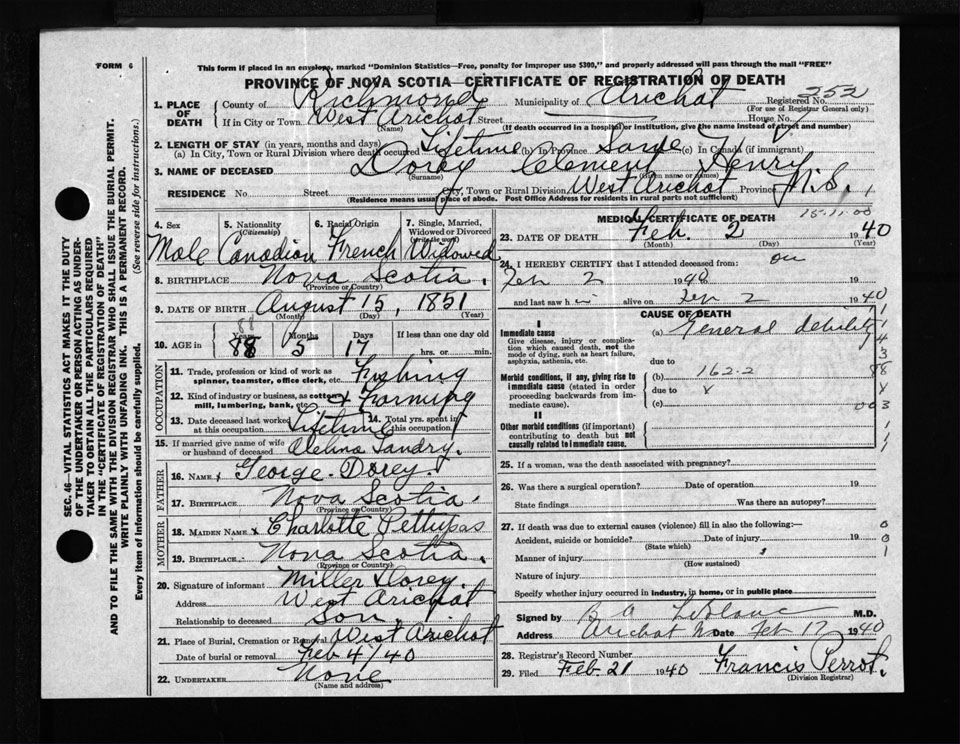 FORM 6
This form if placed in an envelope, marked "Dominion Statistics—Free, penalty for improper use $300," and properly addressed will pass through the mail "FREE"
PROVINCE OF NOVA SCOTIA—CERTIFICATE OF REGISTRATION OF DEATH
1. PLACE OF DEATH County of Richmond Municipality of Arichat Registered No. 252
(For use of Registrar General only)
If in City or Town West Arichat Street House No.
(Name) (If death occurred in a hospital or institution, give the name instead of street and number)
2. LENGTH OF STAY (in years, months and days)
(a) In City, Town or Rural Division where death occurred Lifetime (b) In Province Same (c) In Canada (if immigrant)
3. NAME OF DECEASED Dorey Clement Henry
(Surname) (Given name or names)
RESIDENCE No. Street City, Town or Rural Division West Arichat Province N.S.
(Residence means usual place of abode. Post Office Address for residents in rural parts not sufficient)
SEC. 46—VITAL STATISTICS ACT MAKES IT THE DUTY
OF THE UNDERTAKER OR PERSON ACTING AS UNDER-
TAKER TO OBTAIN ALL THE PARTICULARS REQUIRED
IN THE "CERTIFICATE OF REGISTRATION OF DEATH"
AND TO FILE THE SAME WITH THE DIVISION REGISTRAR WHO SHALL ISSUE THE BURIAL PERMIT.
WRITE PLAINLY WITH UNFADING INK. THIS IS A PERMANENT RECORD.
Every item of information should be carefully supplied. (See reverse side for instructions.)
4. Sex 5. Nationality (Citizenship) 6. Racial Origin 7. Single, Married, Widowed or Divorced (write the word)
Male Canadian French Widowed
8. BIRTHPLACE Nova Scotia.
(Province or Country)
9. DATE OF BIRTH August 15, 1851
(Month) (Day) (Year)
10. AGE in Years Months Days If less than one day old
88 5 17 hrs. or min.
OCCUPATION
11. Trade, profession or kind of work as spinner, teamster, office clerk, etc. Fishing
12. Kind of industry or business, as cotton mill, lumbering, bank, etc. & Farming
13. Date deceased last worked at this occupation Lifetime 14. Total yrs. spent in this occupation
15. If married give name of wife or husband of deceased Landry.
FATHER
16. NAME George Dorey.
17. BIRTHPLACE Nova Scotia.
(Province or Country)
MOTHER
18. MAIDEN NAME Charlotte Pettipas
19. BIRTHPLACE Nova Scotia.
(Province or Country)
20. Signature of informant Miller Dorey.
Address West Arichat
Relationship to deceased Son.
21. Place of Burial, Cremation or Removal West Arichat
Date of burial or removal Feb 4/40
22. UNDERTAKER None
(Name and address)
MEDICAL CERTIFICATE OF DEATH
23. DATE OF DEATH Feb. 2 1940
(Month) (Day) (Year)
24. I HEREBY CERTIFY that I attended deceased from: on
Feb 2 1940
and last saw h im alive on Feb 2 1940
CAUSE OF DEATH
I
Immediate cause (a) General debility
Give disease, injury or complication which caused death, not the mode of dying, such as heart failure, asphyxia, asthenia, etc.
due to
Morbid conditions, if any, giving rise to immediate cause (stated in order proceeding backwards from immediate cause). (b) 162.2
due to
(c)
II
Other morbid conditions (if important) contributing to death but not causally related to immediate cause.
25. If a woman, was the death associated with pregnancy?
26. Was there a surgical operation? Date of operation 19
State findings Was there an autopsy?
27. If death was due to external causes (violence) fill in also the following:—
Accident, suicide or homicide? Date of injury 19
(State which)
Manner of injury
(How sustained)
Nature of injury
Specify whether injury occurred in industry, in home, or in public place
Signed by B A LeBlanc M.D.
Address Arichat Date Feb 17 1940
28. Registrar's Record Number
29. Filed Feb. 21 1940 Francis Perrot.
(Division Registrar)